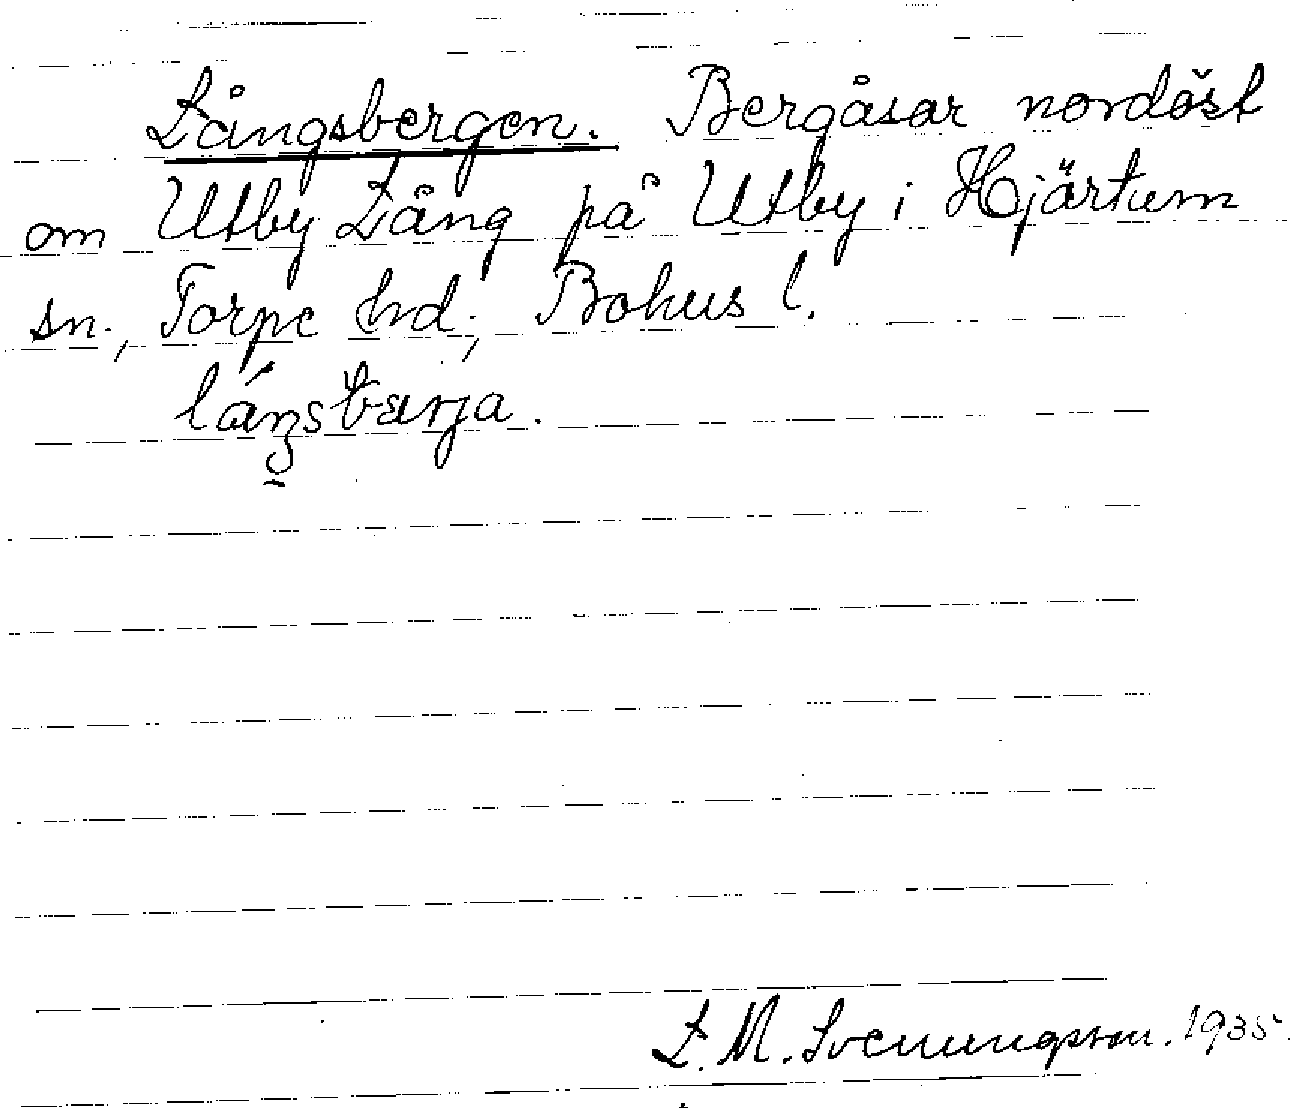 Långsbergen. Bergåsar nordöst
om Utby Lång på Utby i Hjärtum
sn., Torpe hd., Bohus l.
L. M. Svenungsson. 1935.